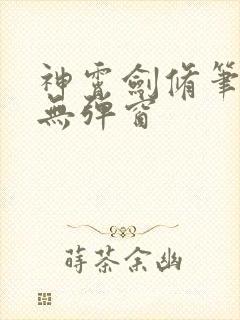 神霄劍脩筆
無彈窗
蒔茶余幽